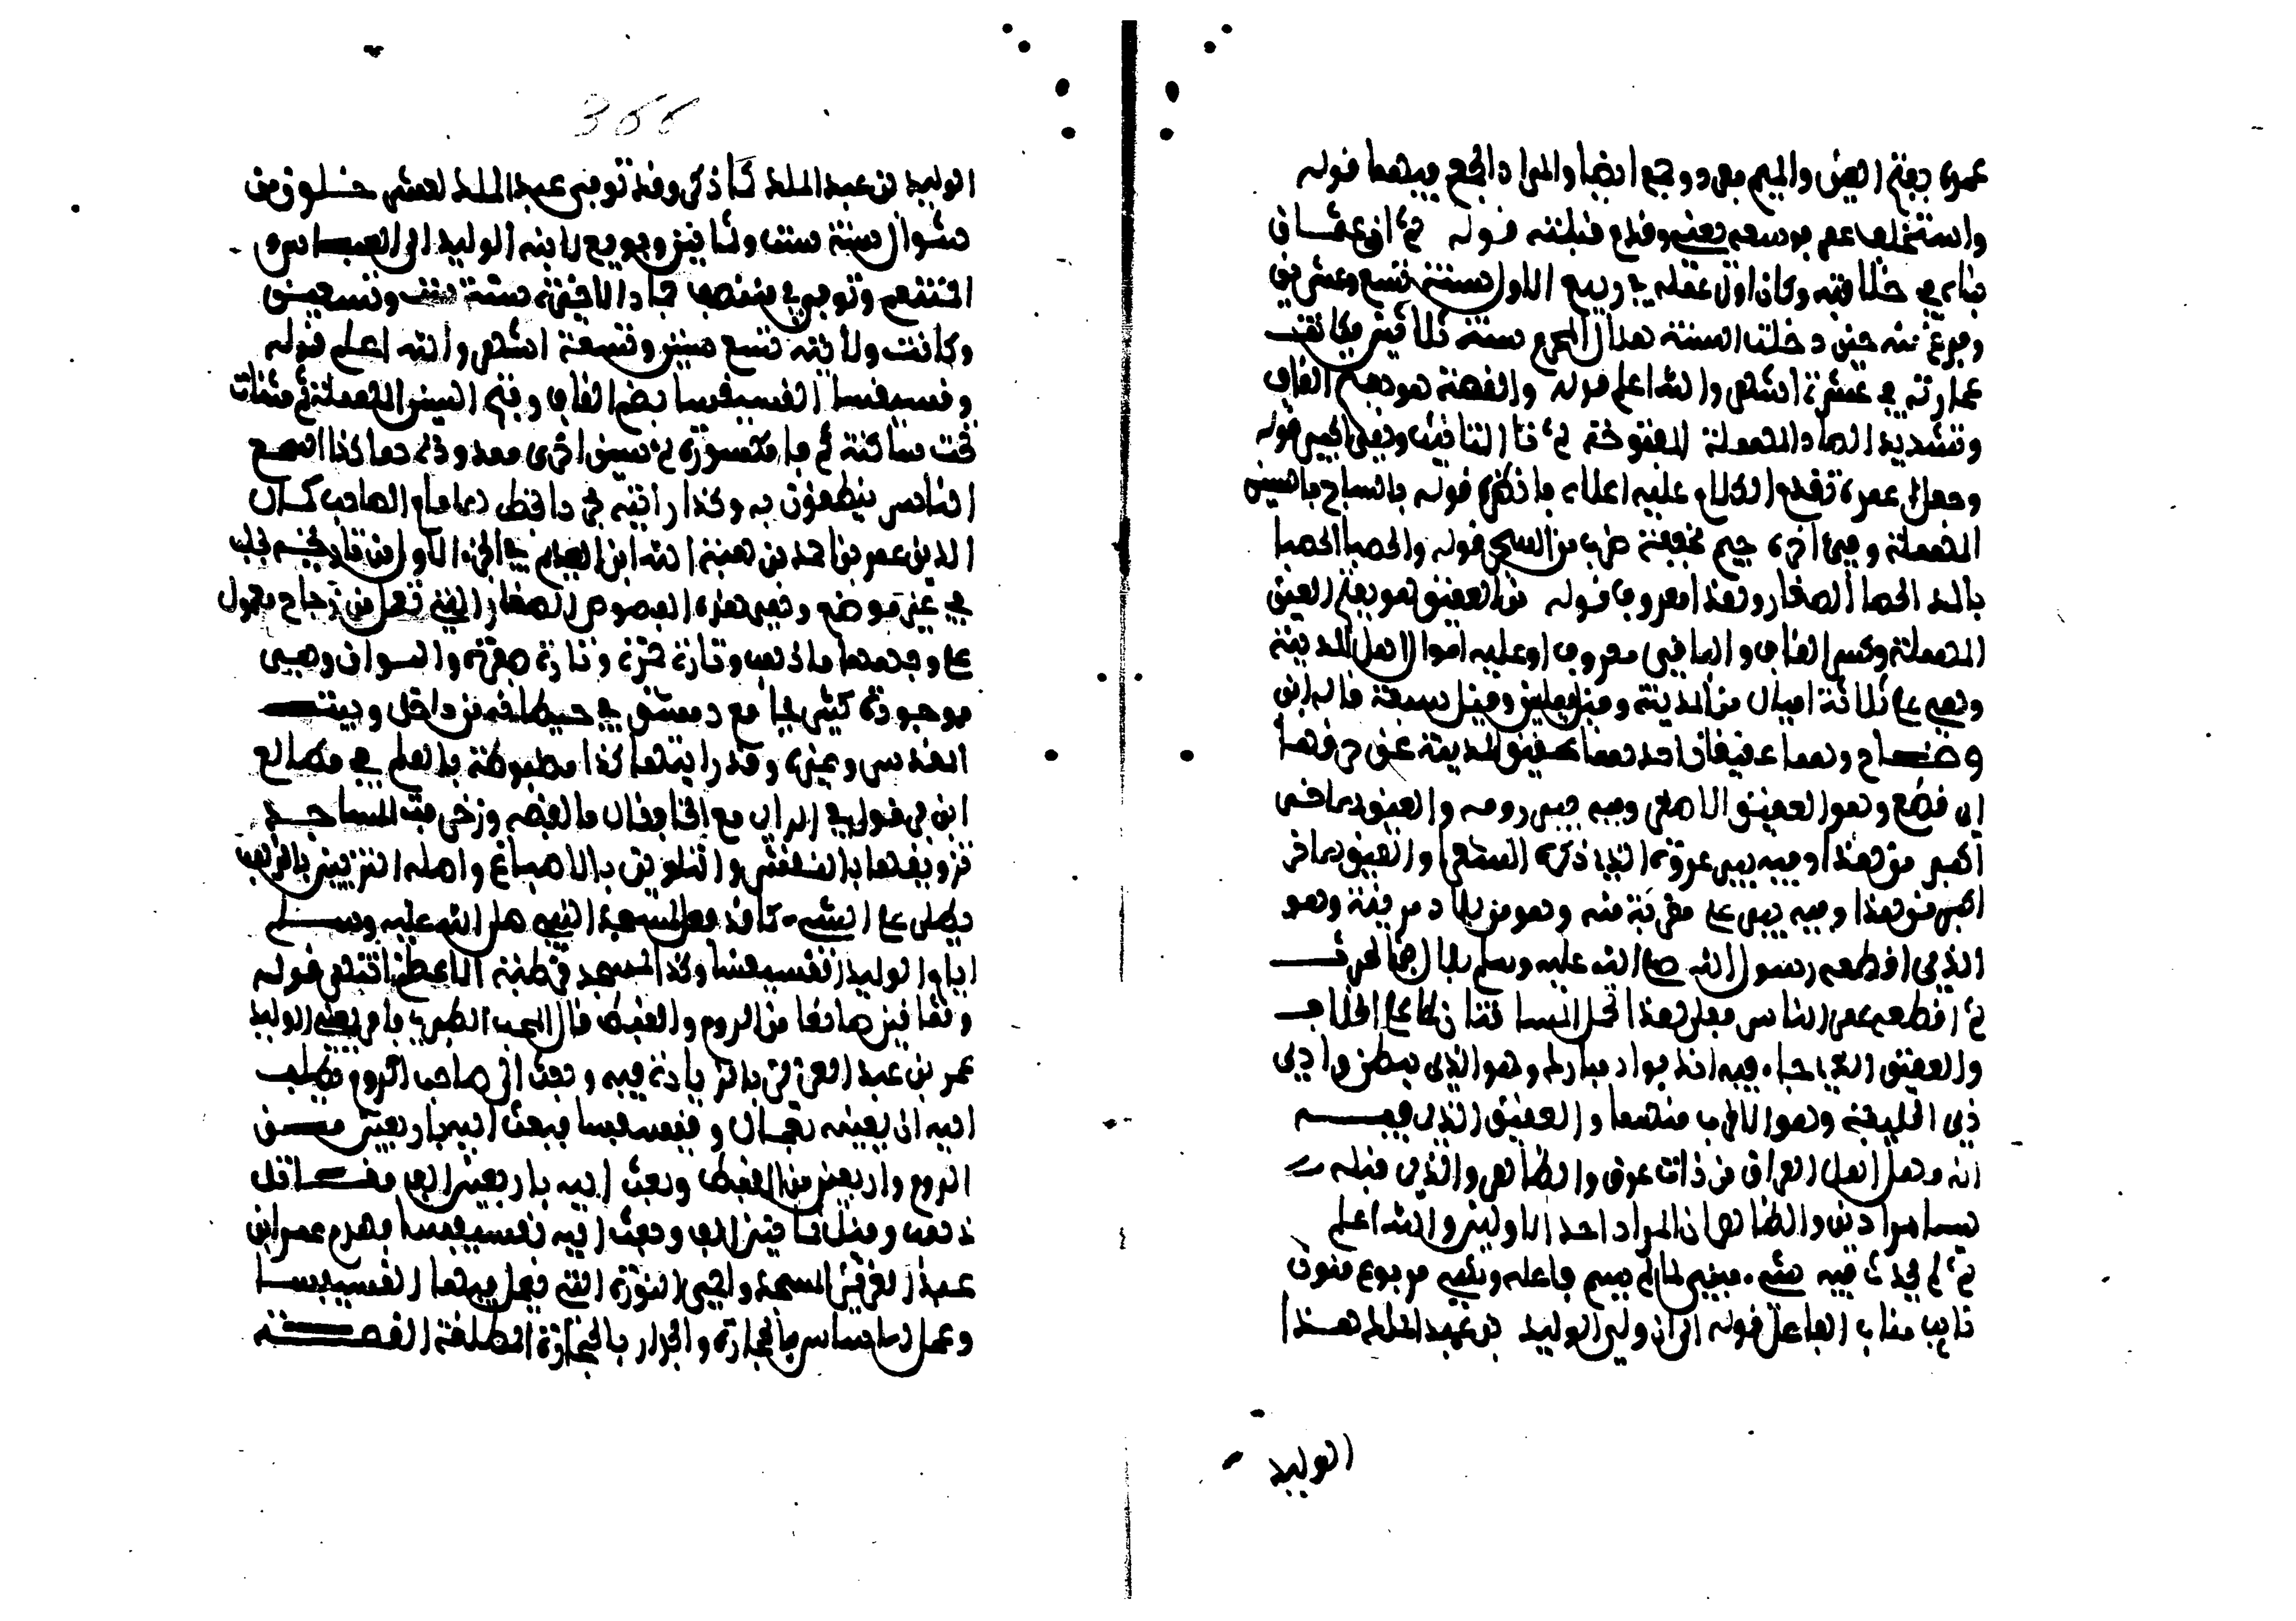 عمده بفتح العين والميم مفرد وجمع ايضا والمراد الجمع فيهما قوله
واستخلف عمر فوسعه يعنى وقدم قبلته قوله ثم ان عثمان
بناه في خلافته وكان اول عمله في ربيع الاول سنة تسع وعشرين
وفرغ منه حين دخلت السنة هلال المحرم سنة ثلاثين فكانت
عمارته في عشرة اشهر والله اعلم قوله والقصة هو بفتح القاف
وتشديد الصاد المهملة المفتوحة ثم تا التانيث وهي الجير قوله
وجعل عمده تقدم الكلام عليه اعلاه ما ذكره قوله بالساج بالسين
المهملة وفي اخره جيم مخففة ضرب من الشجر قوله والحصبا الحصبا
بالمد الحصا الصغار وهذا معروف قوله من العقيق هو بفتح العين
المهملة وكسر القاف والباقي معروف وعليه اموال اهل المدينة
وهي على ثلاثة اميال من المدينة وقيل ميلين وقيل سبعة قاله ابن
وضاح وهما عقيقان احدهما عقيق المدينة عق حرفها
اي قطع وهو العقيق الاصغر وفيه بير رومة والعقيق الاخر
اكبر من هذا وفيه بير عروة الذي ذكره الشعرا والعقيق الاخر
اكبر من هذا وفيه بير على مقربة منه وهو من بلاد مزينة وهو
الذي اقطعه رسول الله صلى الله عليه وسلم بلال بن الحرث
ثم اقطعه عمر الناس فعلى هذا تحمل المسافتان لا على الخلاف
والعقيق الذي جاء فيه انك بواد مبارك هو الذي ببطن وادي
ذي الحليفة وهو الاقرب منهما والعقيق الذي فيه
انه مهل اهل العراق من ذات عرق والظاهر والذي قبله
ليسا مرادين والظاهر ان المراد احد الاولين والله اعلم
ثم لم يحدث فيه شيء مبني لما لم يسم فاعله وشيء مرفوع منون
نايب مناب الفاعل قوله الى ان ولي الوليد بن عبد الملك هذا
الوليد
366
الوليد بن عبد الملك كما ذكر وقد توفي عبد الملك لعشر خلون من
شوال سنة ست وثمانين وبويع لابنه الوليد ابي العباس
المنتقم وتوفي في نصف جمادا الاخرة سنة ست وتسعين
وكانت ولايته تسع سنين وتسعة اشهر والله اعلم قوله
وفسيفسا الفسيفسا بضم الفاف وفتح السين المهملة ثم مثناة
تحت ساكنة ثم فا مكسورة ثم سين اخرى ممدود ذكر هما كذا اسمع
الناس ينطقون به وكذا رايته بخط الامام الصاحب كمال
الدين عمر بن احمد بن هبة الله ابن العديم في الجزء الاول من تاريخه لحلب
في غير موضع وهي هذه الفصوص الصغار التي تعمل من زجاج معمول
على وجهها ماء ذهب وتارة خضرة وتارة صفرة والسوان وهي
موجودة كثير بجامع دمشق في حيطانه من داخل وبيت
المقدس وغيره وقد رايتها كذا مضبوطة بالقلم في مطالع
ابن قرقول في الراي مع الخا فقال ما لفظه وزخرفت المساجد
تزويقها بالنقش والتلوين بالاصباغ واصله التزيين بالذهب
يطلى على الشيء كما قد فعل بمسجد النبي صلى الله عليه وسلم
ايام الوليد الفسيفسا وكذا بمسجد قرطبة الاعظم انتهى قوله
وثمانين صانعا من الروم والقبط قال المحب الطبري فامر يعني الوليد
عمر بن عبد العزيز بالزيادة فيه وبعث الى صاحب الروم يطلب
اليه ان يعينه بعمال وفسيفسا فبعث اليه باربعين من
الروم واربعين من القبط وبعث اليه باربعين الف مثقال
ذهب وقيل ثمانين الف وبعث اليه بفسيفسا فهدم عمر ابن
عبد العزيز المسجد واخمر النورة التي تعمل فيها الفسيفسا
وعمل الاساس بالحجارة والجدار بالحجارة المطابقة القصة